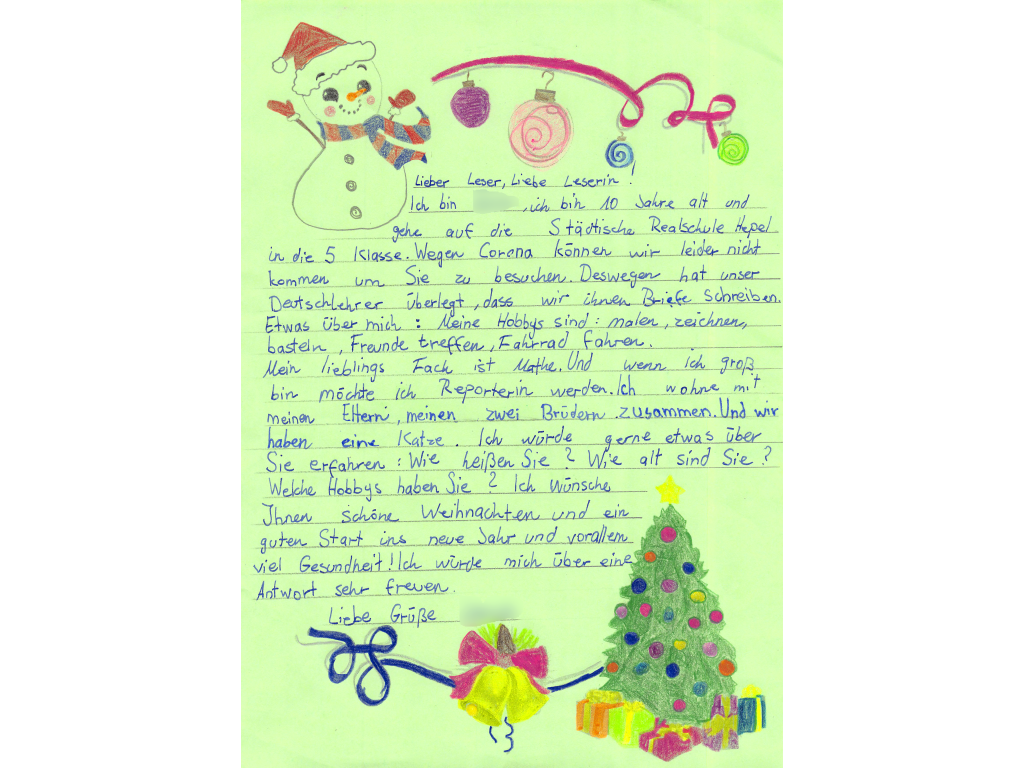 Lieber Leser, Liebe Leserin!
Ich bin , ich bin 10 Jahre alt und
gehe auf die Städtische Realschule Hepel
in die 5 Klasse. Wegen Corona können wir leider nicht
kommen um Sie zu besuchen. Deswegen hat unser
Deutschlehrer überlegt, dass wir ihnen Briefe schreiben.
Etwas über mich : Meine Hobbys sind : malen, zeichnen,
basteln , Freunde treffen, Fahrrad fahren.
Mein lieblings Fach ist Mathe. Und wenn ich groß
bin möchte ich Reporterin werden. Ich wohne mit
meinen Eltern, meinen zwei Brüdern zusammen. Und wir
haben eine Katze. Ich würde gerne etwas über
Sie erfahren : Wie heißen Sie ? Wie alt sind Sie ?
Welche Hobbys haben Sie ? Ich Wünsche
Ihnen schöne Weihnachten und ein
guten Start ins neue Jahr und vorallem
viel Gesundheit! Ich würde mich über eine
Antwort sehr freuen.
Liebe Grüße